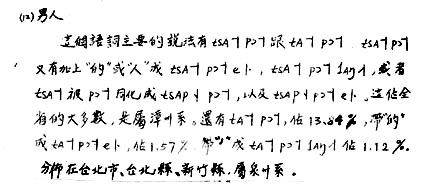 (12) 男人
這個語詞主要的說法有 tsʌ˥ pɔ˥ 跟 tʌ˥ pɔ˥. tsʌ˥ pɔ˥
又有加上"的"或"人"成 tsʌ˥ pɔ˥ e˩, tsʌ˥ pɔ˥ laŋ˧, 或者
tsʌ˥ 被 pɔ˥ 同化成 tsʌp˧ pɔ˥, 以及 tsʌp˧ pɔ˥ e˩. 這佔全
省的大多數, 是屬漳州系. 還有 tʌ˥ pɔ˥, 佔 13.84%, 帶"的"
成 tʌ˥ pɔ˥ e˩, 佔 1.57%. 帶"人"成 tʌ˥ pɔ˥ laŋ˧ 佔 1.12%.
分佈在台北市、台北縣、新竹縣, 屬泉州系.